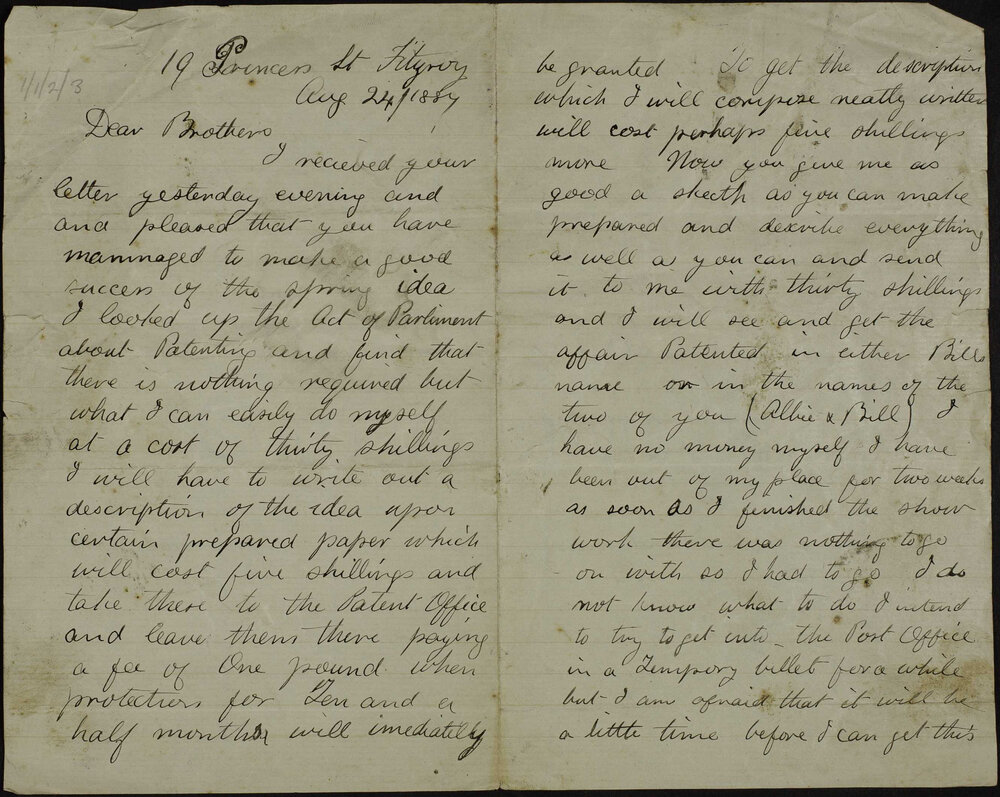 1/1/2/3
19 Princess St Fitzroy
Aug 24/1887
Dear Brothers
I recieved your
letter yesterday evening and
and pleased that you have
mannaged to make a good
success of the spring idea
I looked up the Act of Parliment
about Patenting and find that
there is nothing required but
what I can easily do myself
at a cost of thirty shillings
I will have to write out a
description of the idea upon
certain prepared paper which
will cost five shillings and
take these to the Patent Office
and leave them there paying
a fee of One pound when
protection for Ten and a
half months will imediatelly
be granted To get the description
which I will compose neatly written
will cost perhaps five shillings
more Now you give me as
good a sketch as you can make
prepared and describe everything
as well as you can and send
it to me with thirty shillings
and I will see and get the
affair Patented in either Bills
name or in the names of the
two of you (Albie & Bill) I
have no money myself I have
been out of my place for two weeks
as soon as I finished the show
work there was nothing to go
on with so I had to go I do
not know what to do I intend
to try to get into the Post Office
in a Tempory billet for a while
but I am afraid that it will be
a little time before I can get this